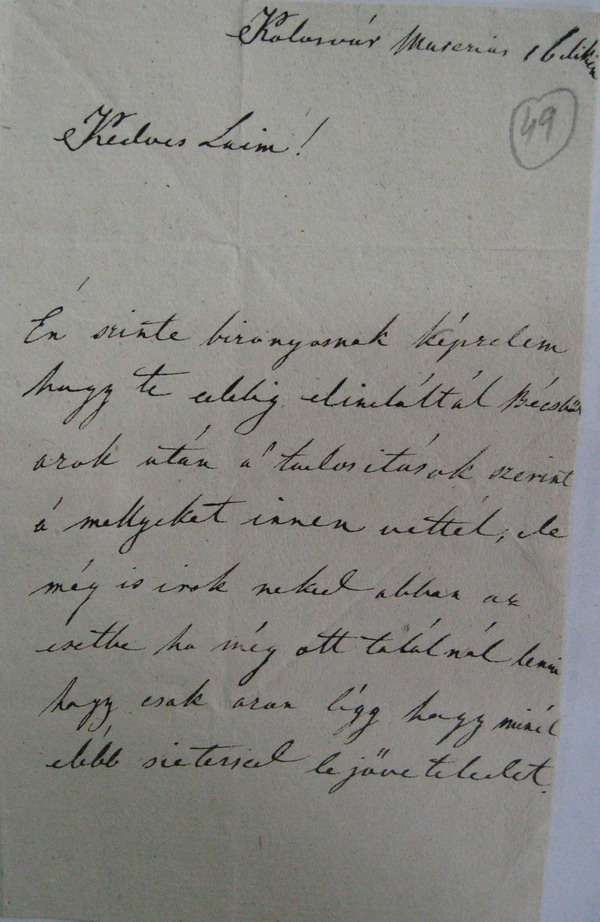 Kolosvár 16dikán
49
Kedves Luim!
Én szinte bizonyosnak képzelem
hogy te eddig elindúltál Bécsből
azok után a' tudositások szerint
á mellyeket innen vettél, de
még is irok neked abban az
esetbe ha még ott találnál lenni
hogy csak azon légy hogy minél
elébb sietessed lejöveteledet.